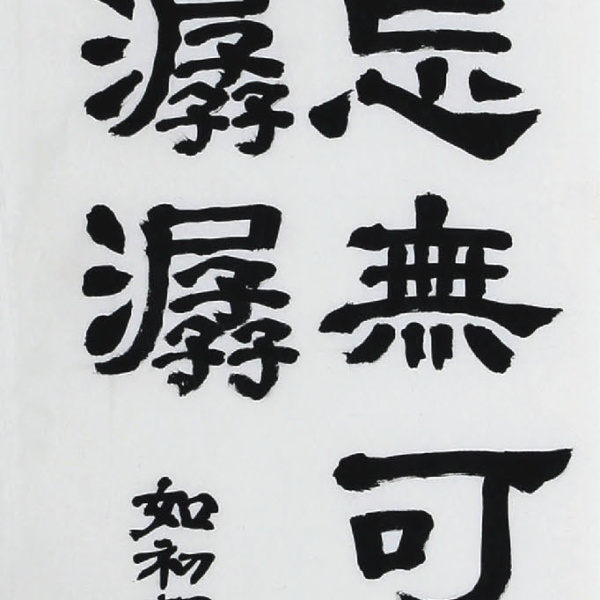 無可
潺潺
如初